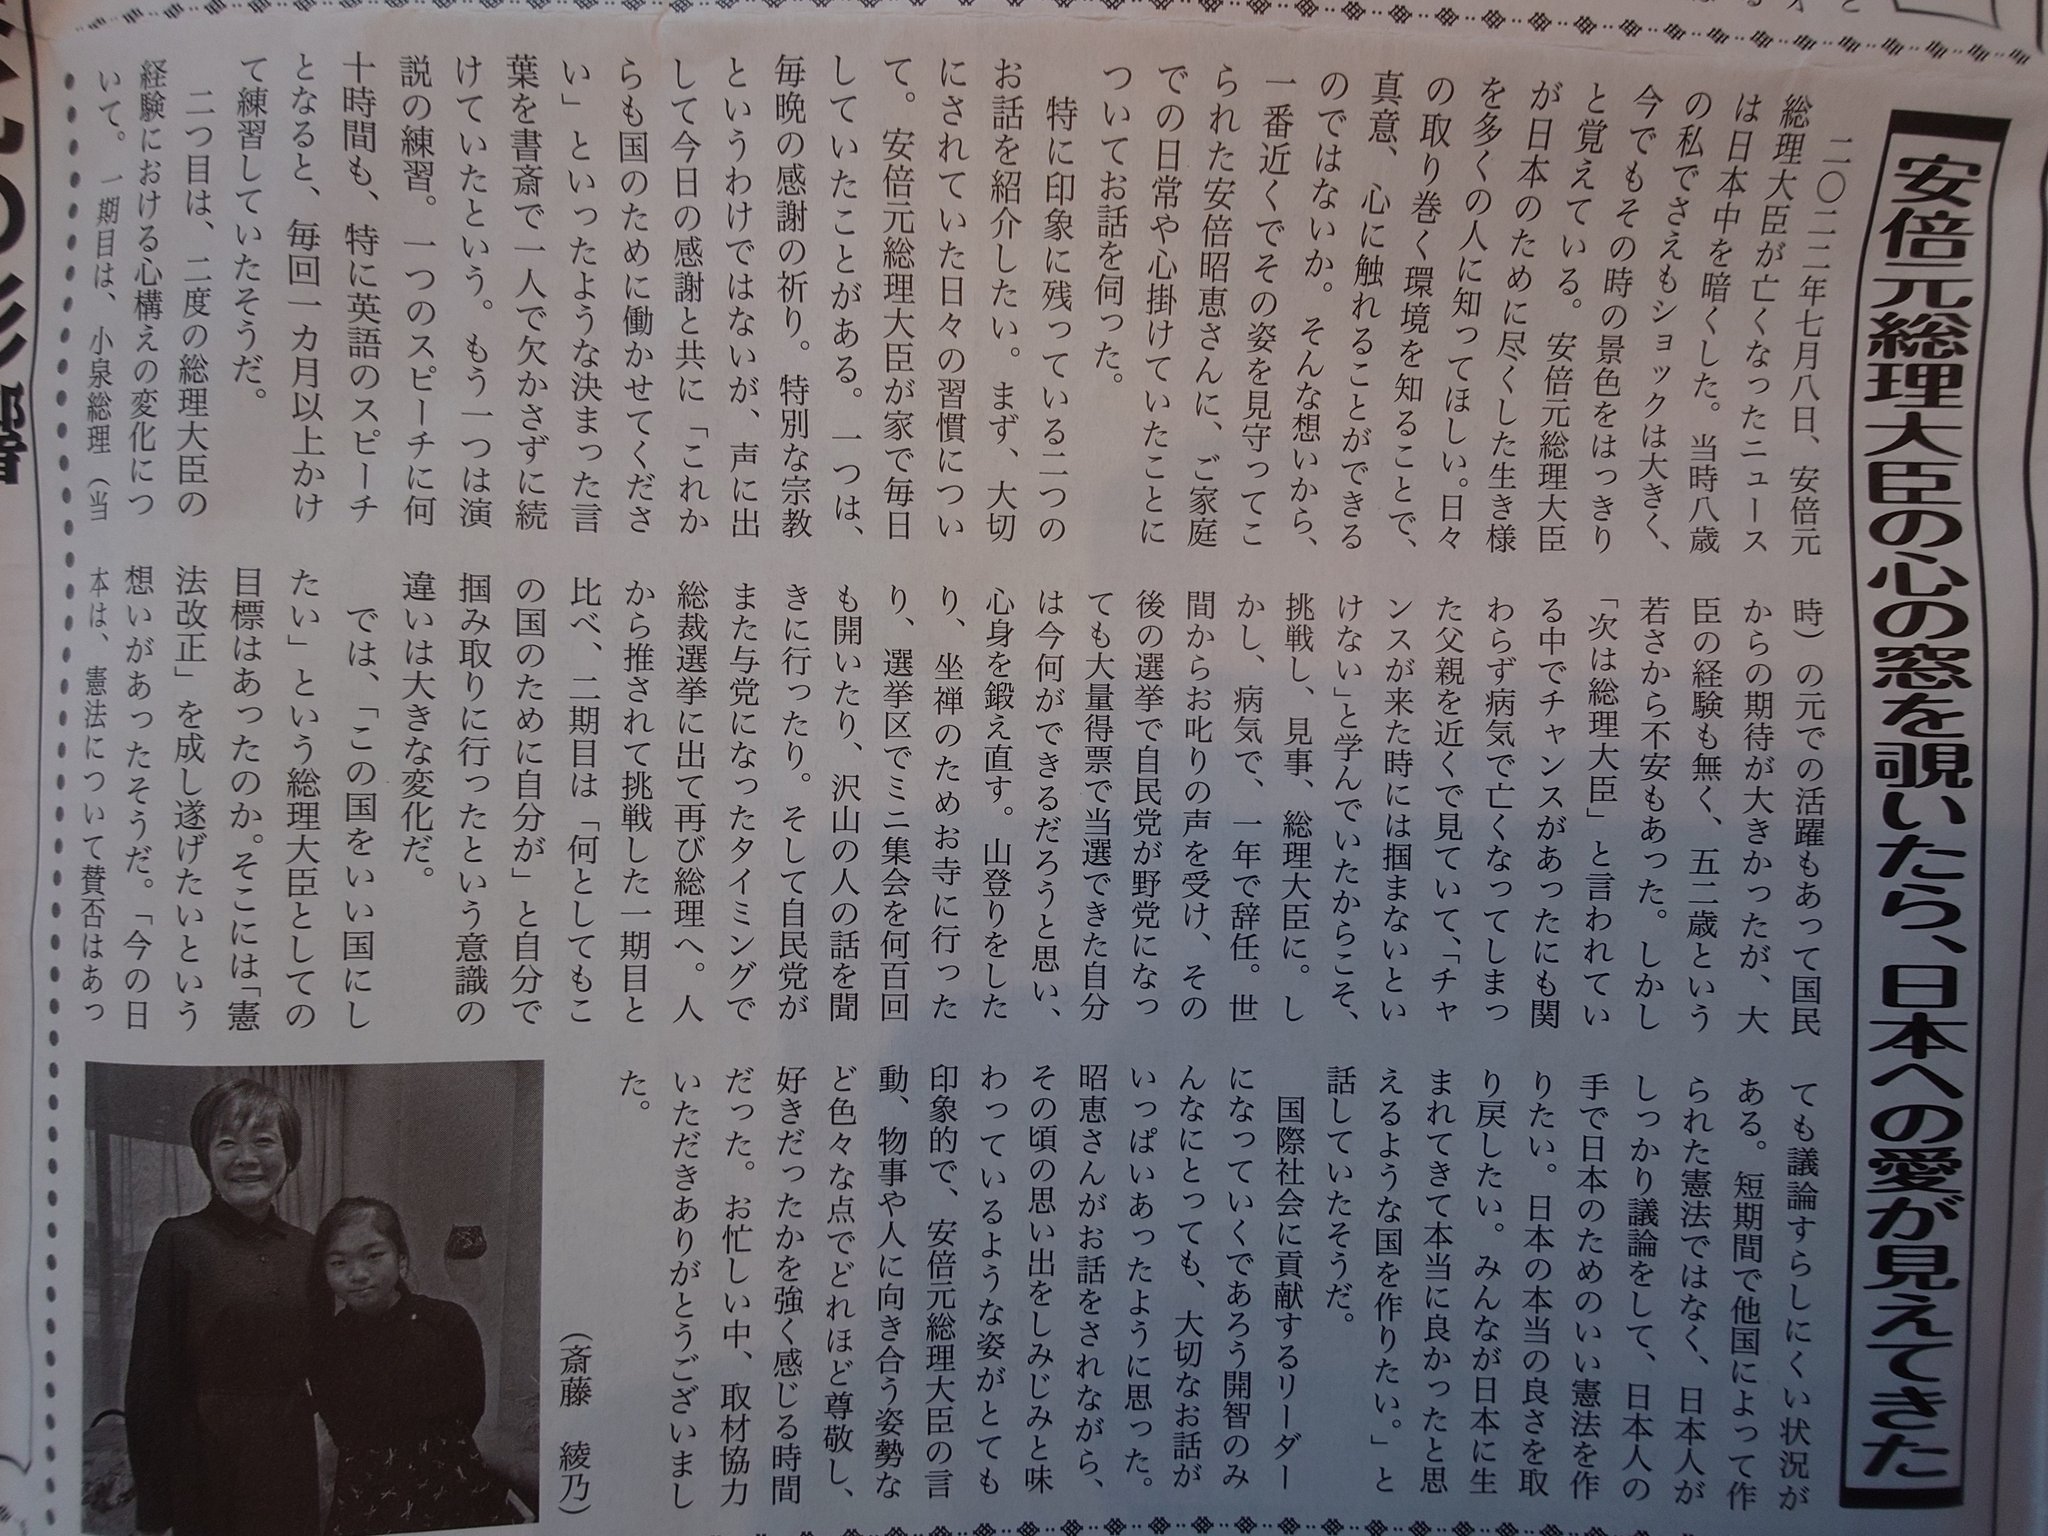 安倍元総理大臣の心の窓を覗いたら、日本への愛が見えてきた
二〇二二年七月八日、安倍元
総理大臣が亡くなったニュース
は日本中を暗くした。当時八歳
の私でさえもショックは大きく、
今でもその時の景色をはっきり
と覚えている。安倍元総理大臣
が日本のために尽くした生き様
を多くの人に知ってほしい。日々
の取り巻く環境を知ることで、
真意、心に触れることができる
のではないか。そんな想いから、
一番近くでその姿を見守ってこ
られた安倍昭恵さんに、ご家庭
での日常や心掛けていたことに
ついてお話を伺った。
特に印象に残っている二つの
お話を紹介したい。まず、大切
にされていた日々の習慣につい
て。安倍元総理大臣が家で毎日
していたことがある。一つは、
毎晩の感謝の祈り。特別な宗教
というわけではないが、声に出
して今日の感謝と共に「これか
らも国のために働かせてくださ
い」といったような決まった言
葉を書斎で一人で欠かさずに続
けていたという。もう一つは演
説の練習。一つのスピーチに何
十時間も、特に英語のスピーチ
となると、毎回一カ月以上かけ
て練習していたそうだ。
二つ目は、二度の総理大臣の
経験における心構えの変化につ
いて。一期目は、小泉総理（当
時）の元での活躍もあって国民
からの期待が大きかったが、大
臣の経験も無く、五二歳という
若さから不安もあった。しかし
「次は総理大臣」と言われてい
る中でチャンスがあったにも関
わらず病気で亡くなってしまっ
た父親を近くで見ていて、「チャ
ンスが来た時には掴まないとい
けない」と学んでいたからこそ、
挑戦し、見事、総理大臣に。し
かし、病気で、一年で辞任。世
間からお叱りの声を受け、その
後の選挙で自民党が野党になっ
ても大量得票で当選できた自分
は今何ができるだろうと思い、
心身を鍛え直す。山登りをした
り、坐禅のためお寺に行った
り、選挙区でミニ集会を何百回
も開いたり、沢山の人の話を聞
きに行ったり。そして自民党が
また与党になったタイミングで
総裁選挙に出て再び総理へ。人
から推されて挑戦した一期目と
比べ、二期目は「何としてもこ
の国のために自分が」と自分で
掴み取りに行ったという意識の
違いは大きな変化だ。
では、「この国をいい国にし
たい」という総理大臣としての
目標はあったのか。そこには「憲
法改正」を成し遂げたいという
想いがあったそうだ。「今の日
本は、憲法について賛否はあっ
ても議論すらしにくい状況が
ある。短期間で他国によって作
られた憲法ではなく、日本人が
しっかり議論をして、日本人の
手で日本のためのいい憲法を作
りたい。日本の本当の良さを取
り戻したい。みんなが日本に生
まれてきて本当に良かったと思
えるような国を作りたい。」と
話していたそうだ。
国際社会に貢献するリーダー
になっていくであろう開智のみ
んなにとっても、大切なお話が
いっぱいあったように思った。
昭恵さんがお話をされながら、
その頃の思い出をしみじみと味
わっているような姿がとても
印象的で、安倍元総理大臣の言
動、物事や人に向き合う姿勢な
ど色々な点でどれほど尊敬し、
好きだったかを強く感じる時間
だった。お忙しい中、取材協力
いただきありがとうございまし
た。
（斎藤 綾乃）